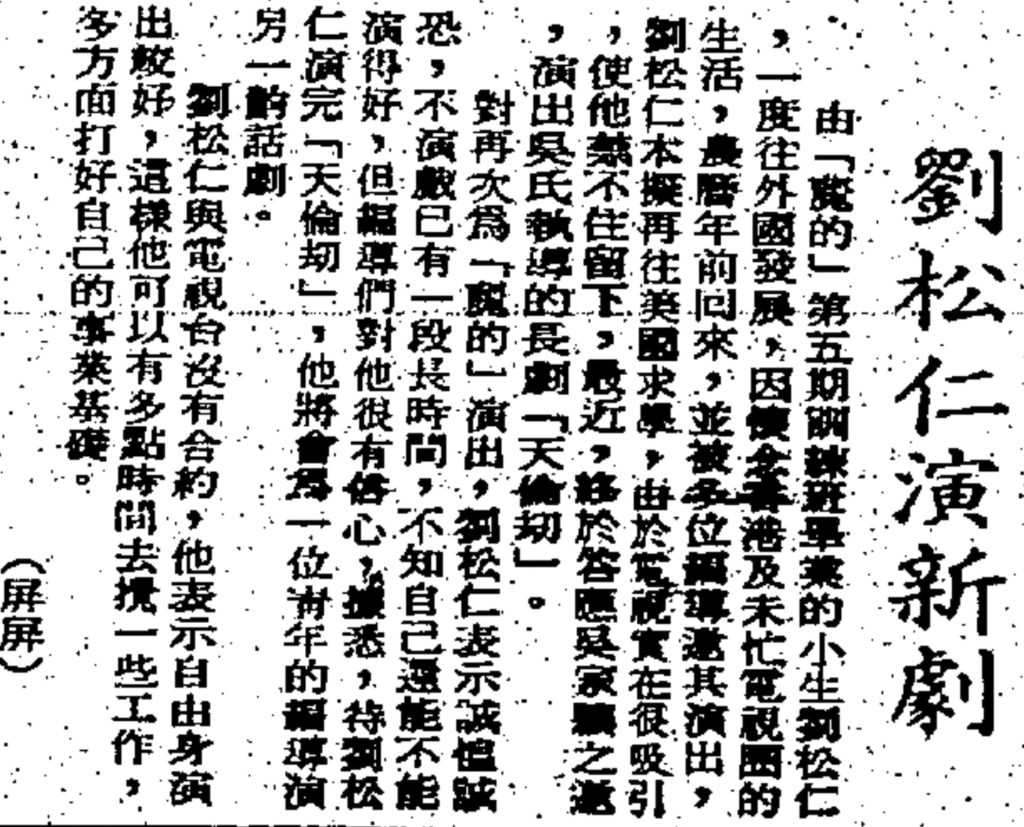 劉松仁演新劇
由「魔的」第五期訓練班畢業的小生劉松仁
，一度往外國發展，因懷念香港及未忙電視圈的
生活，農曆年前回來，並被多位編導邀其演出，
劉松仁本擬再往美國求學，由於電視實在很吸引
，使他禁不住留下，最近，終於答應吳家驤之邀
，演出吳氏執導的長劇「天倫刧」。
對再次為「魔的」演出，劉松仁表示誠惶誠
恐，不演戲已有一段長時間，不知自己還能不能
演得好，但編導們對他很有信心，據悉，待劉松
仁演完「天倫刧」，他將會為一位青年的編導演
另一齣話劇。
劉松仁與電視台沒有合約，他表示自由身演
出較好，這樣他可以有多點時間去攪一些工作，
多方面打好自己的事業基礎。
（屏屏）